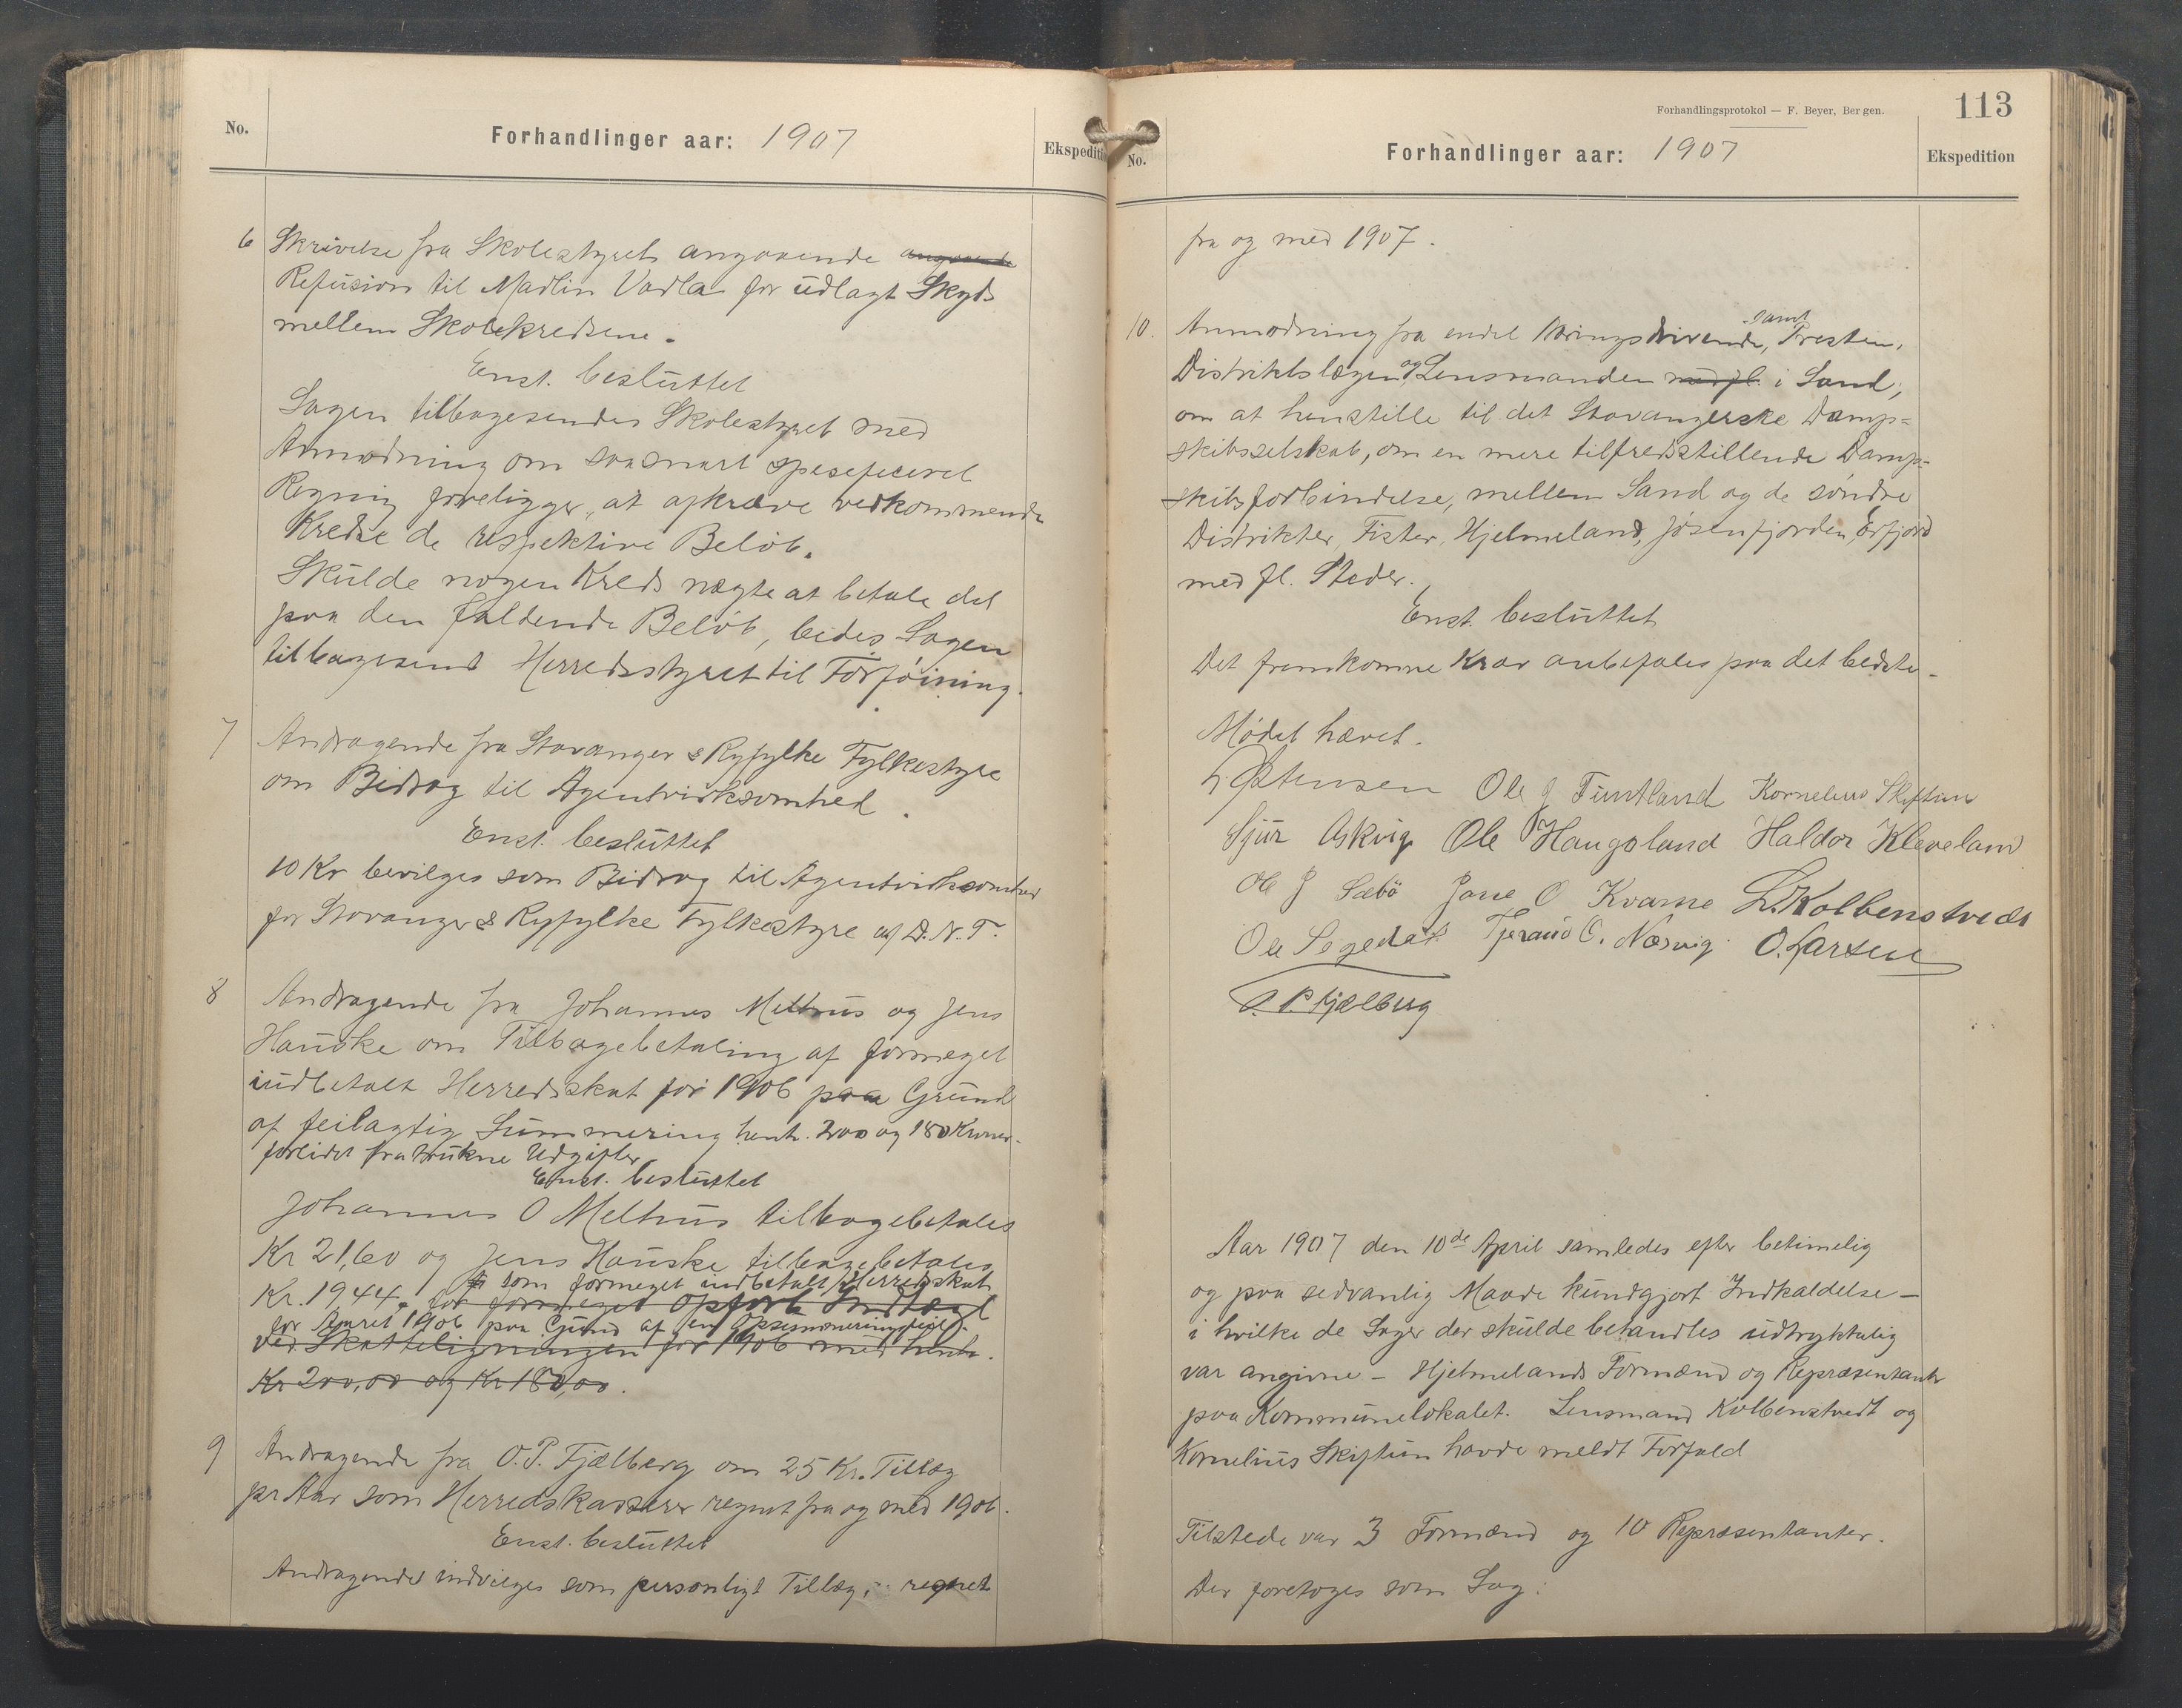 No.
Forhandlinger aar: 1907
Ekspediti
6 Skrivelse fra Skolestyret angaaende ~~angaaende~~
Refusion til Madlin Vadla for udlagt Skyds
mellem Skolekredsene.
Enst. besluttet
Sagen tilbagesendes Skolestyret med
Anmodning om saasnart speseficeret
Regning foreligger, at afkræve vedkommende
Kredse de respektive Beløb.
Skulde nogen Kreds nægte at betale det
paa den faldende Beløb, bedes Sagen
tilbagesend Herredsstyret til Forføining.
7 Andragende fra Stavanger & Ryfylke Fylkestyre
om Bidrag til Agentvirksomhed.
Enst. besluttet
10 Kr bevilges som Bidrag til Agentvirksomhed
for Stavanger & Ryfylke Fylkestyre af D.N.T.
8 Andragende fra Johannes Meltrus og Jens
Hauske om Tilbagebetaling af formeget
indbetalt Herredsskat for 1906 paa Grund
af feilagtig Summering henh. 200 og 180 Kroner
forlidet fratrukne Udgifter
Enst. besluttet
Johannes O Meltrus tilbagebetales
Kr 21,60 og Jens Hauske tilbagebetales
som formeget indbetalt Herredsskat
Kr. 19 44. ~~for formeget opført Indtægt~~
for Aaret 1906 paa Grund af en Opsummeringsfeil.
~~ved Skatteligningen for 1906 med henh.~~
~~Kr 200,00 og Kr 180,00.~~
9 Andragende fra O.P. Fjælberg om 25 Kr. Tillæg
pr Aar som Herredskasserer regnet fra og med 1906.
Enst. besluttet
Andragendet indvilges som personligt Tillæg, regnet
Forhandlingsprotokol — F. Beyer, Bergen.
113
No.
Forhandlinger aar: 1907
Ekspedition
fra og med 1907.
samt
10. Anmodning fra endel Næringsdrivende, Presten,
Distriktslægen og Lensmanden ~~med fl.~~ i Sand,
om at henstille til det Stavangerske Damp-
skibsselskab, om en mere tilfredsstillende Damp-
skibsforbindelse, mellem Sand og de søndre
Distrikter, Fister, Hjelmeland, Jøsenfjorden, Erfjord
med fl. Steder.
Enst. besluttet
Det fremkomne Krav anbefales paa det bedste.
Mødet hævet.
Ole J Tuntland Kornelius Skiftun
Sjur Askvig Ole Haugsland Haldor Kleveland
Ole J Sæbø Jone O Kvame L. Kolbenstvedt
Ole Segedal Tjeraud O. Næsvig O. Larsen
O. P. Fjælberg
Aar 1907 den 10de April samledes efter betimelig
og paa sedvanlig Maade kundgjort Indkaldelse —
i hvilke de Sager der skulde behandles udtrykkelig
var angivne — Hjelmelands Formænd og Repræsentanter
paa Kommunelokalet. Lensmand Kolbenstvedt og
Kornelius Skiftun havde meldt Forfald
Tilstede var 3 Formænd og 10 Repræsentanter.
Der foretoges som Sag: